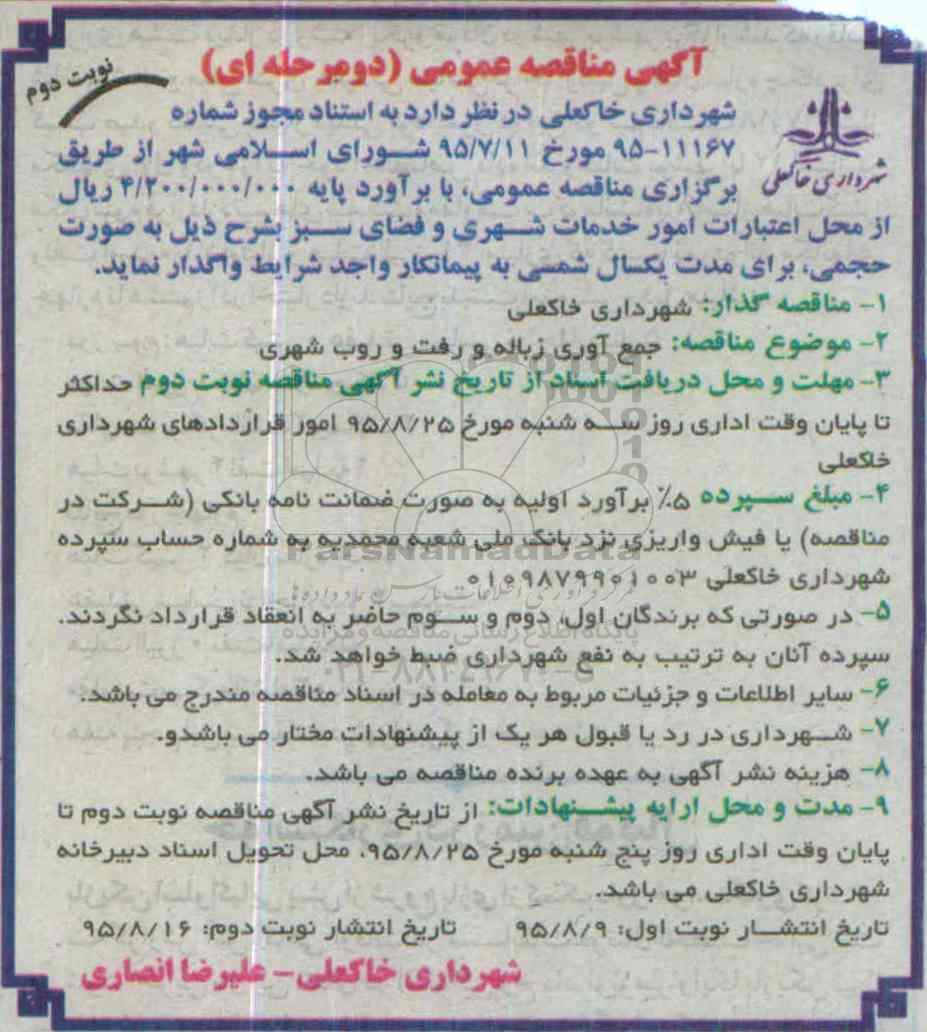 آگهی مناقصه عمومی (دومرحله ای)
نوبت دوم
شهرداری خاکعلی
شهرداری خاکعلی در نظر دارد به استناد مجوز شماره
۱۱۱۶۷-۹۵ مورخ ۹۵/۷/۱۱ شورای اسلامی شهر از طریق
برگزاری مناقصه عمومی، با برآورد پایه ۴/۲۰۰/۰۰۰/۰۰۰ ریال
از محل اعتبارات امور خدمات شهری و فضای سبز بشرح ذیل به صورت
حجمی، برای مدت یکسال شمسی به پیمانکار واجد شرایط واگذار نماید.
۱- مناقصه گذار: شهرداری خاکعلی
۲- موضوع مناقصه: جمع آوری زباله و رفت و روب شهری
۳- مهلت و محل دریافت اسناد از تاریخ نشر آگهی مناقصه نوبت دوم حداکثر
تا پایان وقت اداری روز سه شنبه مورخ ۹۵/۸/۲۵ امور قراردادهای شهرداری
خاکعلی
۴- مبلغ سپرده ۵٪ برآورد اولیه به صورت ضمانت نامه بانکی (شرکت در
مناقصه) یا فیش واریزی نزد بانک ملی شعبه محمدیه به شماره حساب سپرده
شهرداری خاکعلی ۰۱۰۹۸۷۹۹۰۱۰۰۳
۵- در صورتی که برندگان اول، دوم و سوم حاضر به انعقاد قرارداد نگردند.
سپرده آنان به ترتیب به نفع شهرداری ضبط خواهد شد.
۶- سایر اطلاعات و جزئیات مربوط به معامله در اسناد مناقصه مندرج می باشد.
۷- شهرداری در رد یا قبول هر یک از پیشنهادات مختار می باشدو.
۸- هزینه نشر آگهی به عهده برنده مناقصه می باشد.
۹- مدت و محل ارایه پیشنهادات: از تاریخ نشر آگهی مناقصه نوبت دوم تا
پایان وقت اداری روز پنج شنبه مورخ ۹۵/۸/۲۵، محل تحویل اسناد دبیرخانه
شهرداری خاکعلی می باشد.
تاریخ انتشار نوبت اول: ۹۵/۸/۹ تاریخ انتشار نوبت دوم: ۹۵/۸/۱۶
شهرداری خاکعلی- علیرضا انصاری
ParsNamadData
پایگاه اطلاع رسانی مناقصه و مزایده